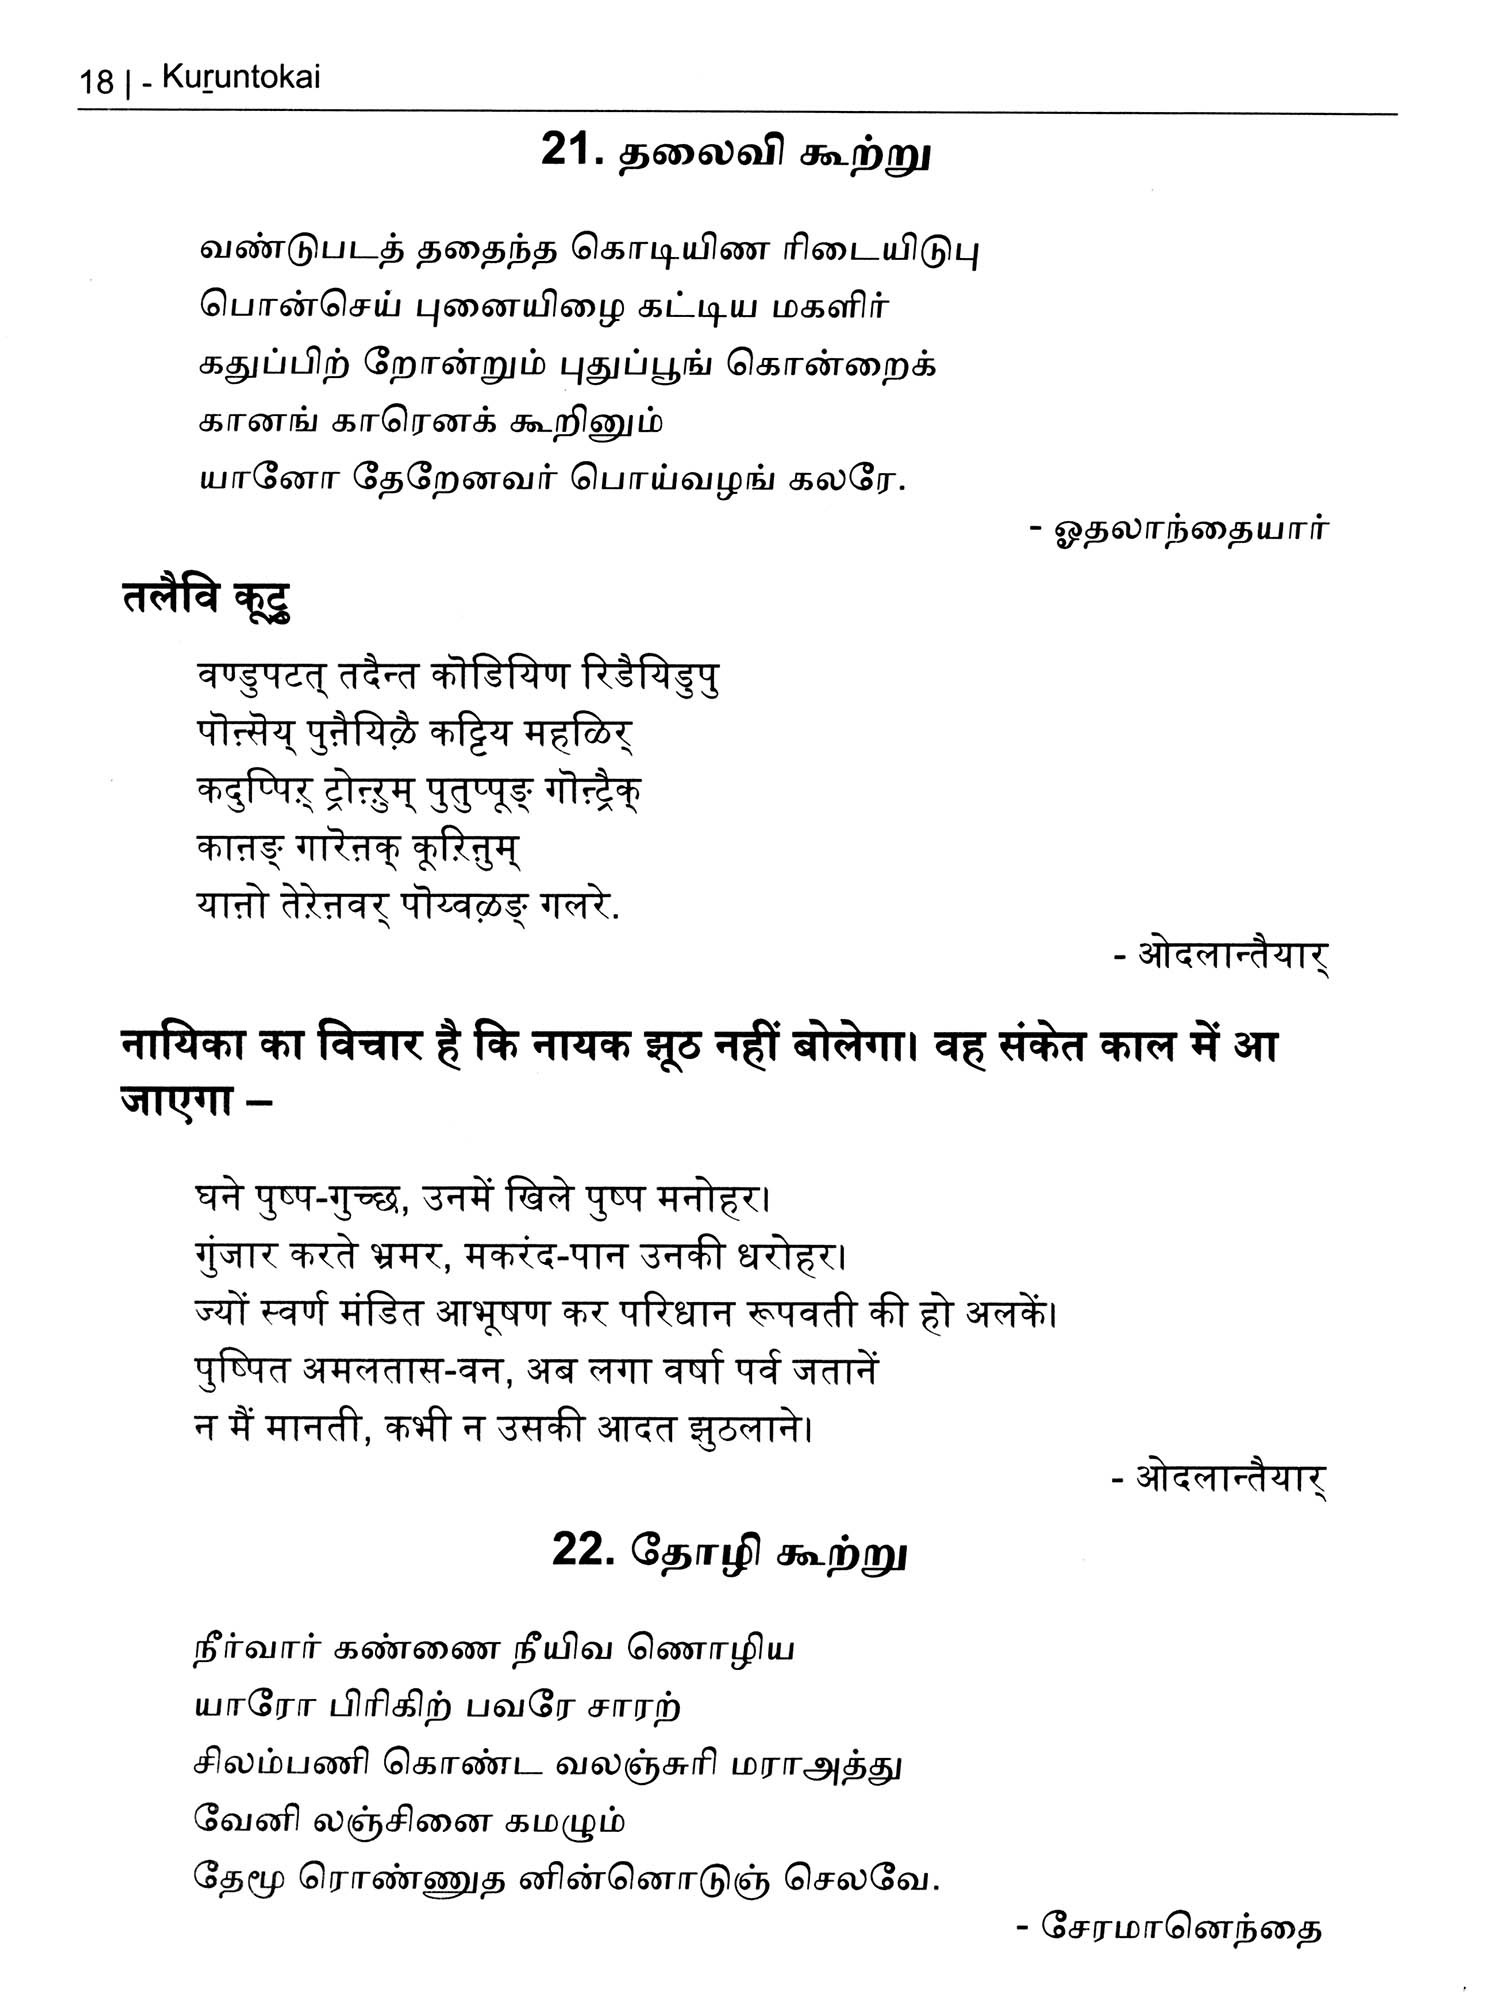 18 | - Kuṟuntokai
21. தலைவி கூற்று
வண்டுபடத் ததைந்த கொடியிண ரிடையிடுபு
பொன்செய் புனையிழை கட்டிய மகளிர்
கதுப்பிற் றோன்றும் புதுப்பூங் கொன்றைக்
கானங் காரெனக் கூறினும்
யானோ தேறேனவர் பொய்வழங் கலரே.
- ஓதலாந்தையார்
तलैवि कूट्रु
वण्डुपटत् तदैन्त कॊडियिण रिडैयिडुपु
पॊऩ्सॆय् पुऩैयिऴै कट्टिय महळिर्
कदुप्पिऱ् ट्रोऩ्ऱुम् पुतुप्पूङ् गॊऩ्ट्रैक्
काऩङ् गारॆऩक् कूऱिऩुम्
याऩो तेऱेऩवर् पॊय्वऴङ् गलरे.
- ओदलान्तैयार्
नायिका का विचार है कि नायक झूठ नहीं बोलेगा। वह संकेत काल में आ
जाएगा –
घने पुष्प-गुच्छ, उनमें खिले पुष्प मनोहर।
गुंजार करते भ्रमर, मकरंद-पान उनकी धरोहर।
ज्यों स्वर्ण मंडित आभूषण कर परिधान रूपवती की हो अलकें।
पुष्पित अमलतास-वन, अब लगा वर्षा पर्व जतानें
न मैं मानती, कभी न उसकी आदत झुठलाने।
- ओदलान्तैयार्
22. தோழி கூற்று
நீர்வார் கண்ணை நீயிவ ணொழிய
யாரோ பிரிகிற் பவரே சாரற்
சிலம்பணி கொண்ட வலஞ்சுரி மராஅத்து
வேனி லஞ்சினை கமழும்
தேமூ ரொண்ணுத னின்னொடுஞ் செலவே.
- சேரமானெந்தை